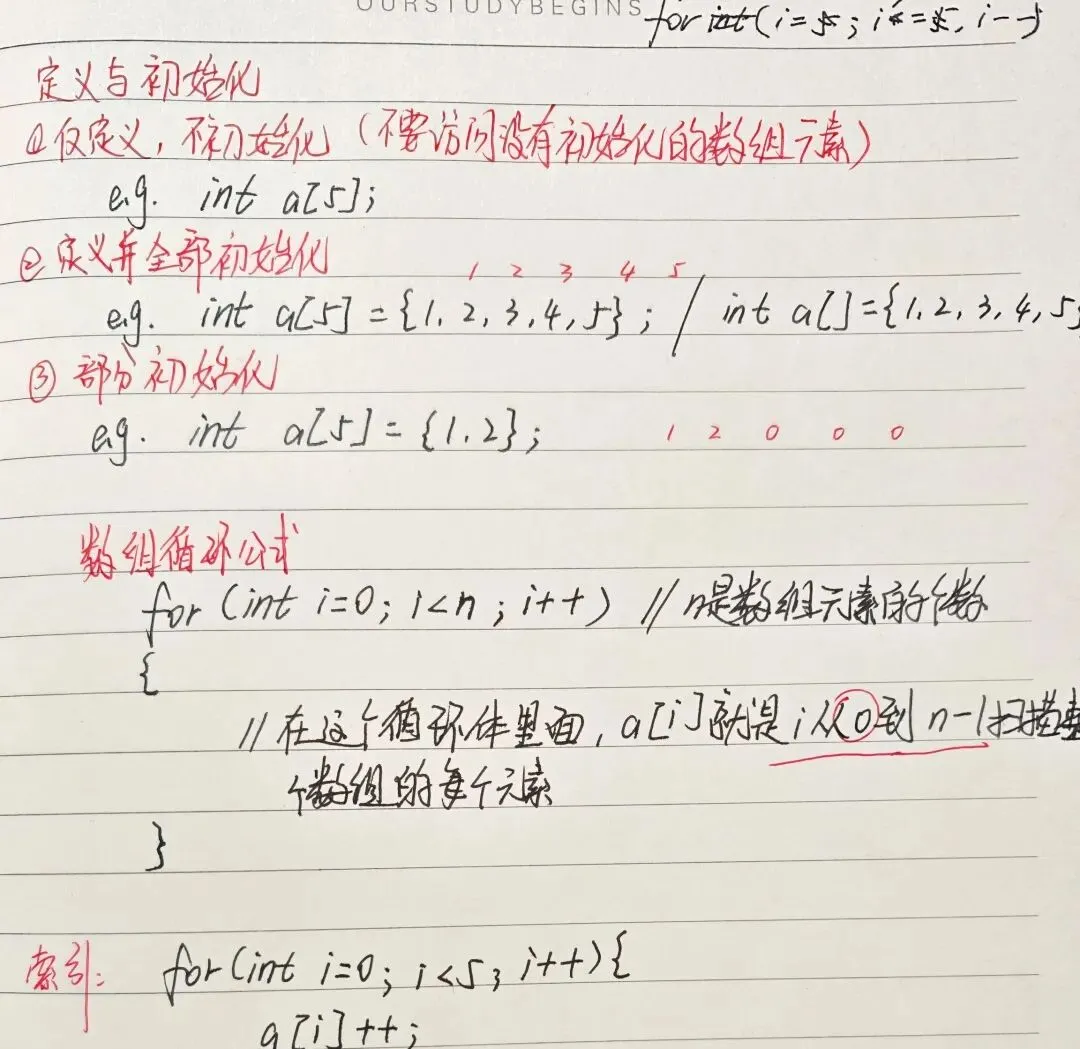 OURSTUDYBEGINS
for int(i=5; i<=5, i--)
定义与初始化
①仅定义，不初始化（不要访问没有初始化的数组元素）
e.g. int a[5];
②定义并全部初始化
1 2 3 4 5
e.g. int a[5]={1,2,3,4,5}; / int a[]={1,2,3,4,5}
③ 部分初始化
e.g. int a[5]={1,2}; 1 2 0 0 0
数组循环公式
for (int i=0; i<n; i++) // n是数组元素的个数
{
// 在这个循环体里面, a[i]就是i从0到n-1扫描整
个数组的每个元素
}
索引: for(int i=0; i<5; i++){
a[i]++;